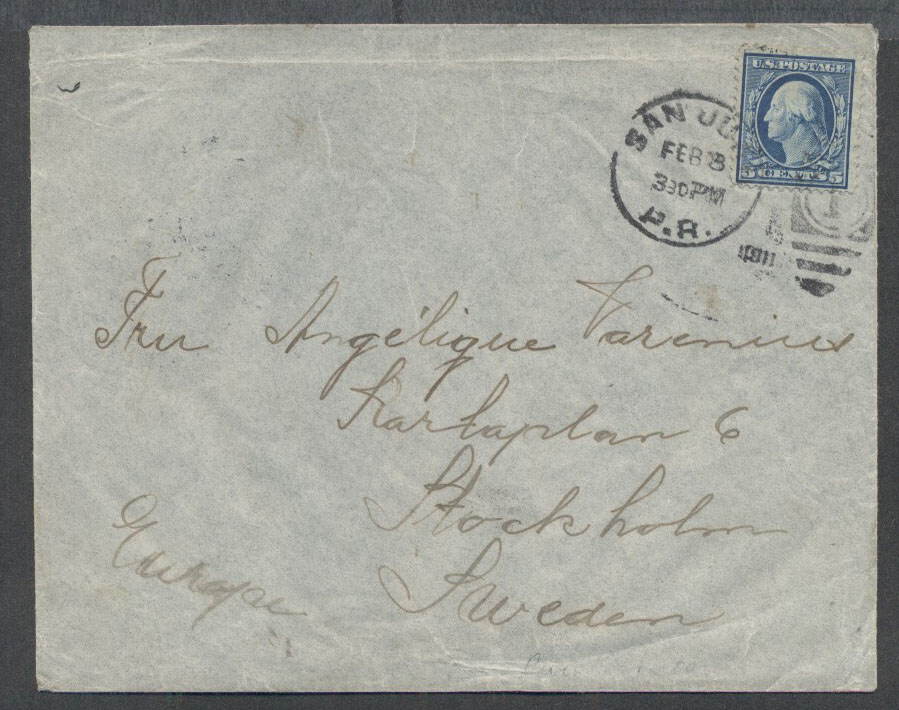 U.S. POSTAGE
5 CENTS 5
SAN JU
FEB 8
330 PM
P.R.
1911
Fru Angélique Varenius
Karlaplan 6
Stockholm
Sweden
Europe